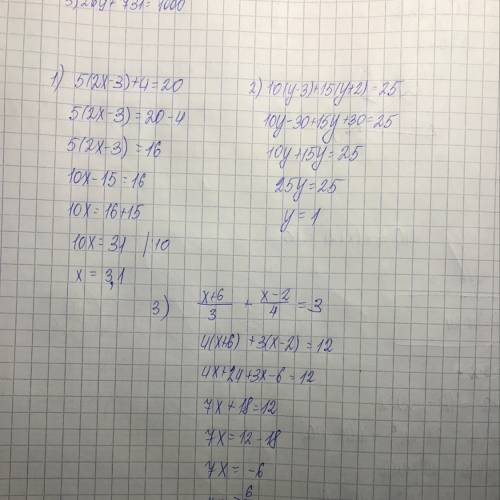 1) 5(2x-3)+4=20
5(2x-3)=20-4
5(2x-3)=16
10x-15=16
10x=16+15
10x=31 /:10
x=3,1
2) 10(y-3)+15(y+2)=25
10y-30+15y+30=25
10y+15y=25
25y=25
y=1
3) (x+6)/3 + (x-2)/4 = 3
4(x+6)+3(x-2)=12
4x+24+3x-6=12
7x+18=12
7x=12-18
7x=-6